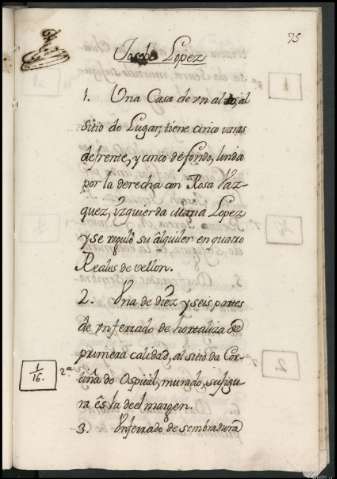 75
Joseph Lopez
1. Una Casa de un alto, al
sitio do Lugar, tiene cinco varas
de frente, y cinco de fondo, linda
por la derecha con Rosa Vaz-
quez, yzquierda Maria Lopez
y se reguló su alquiler en quatro
Reales de vellon.
2. Una de diez y seis partes
de ynferrado de hortaliza de
primera calidad, al sitio da Cor-
tiña do Ospital, murado, su figu-
ra es la de el margen.
1/16. 2ª
3. Unferrado de sembradura